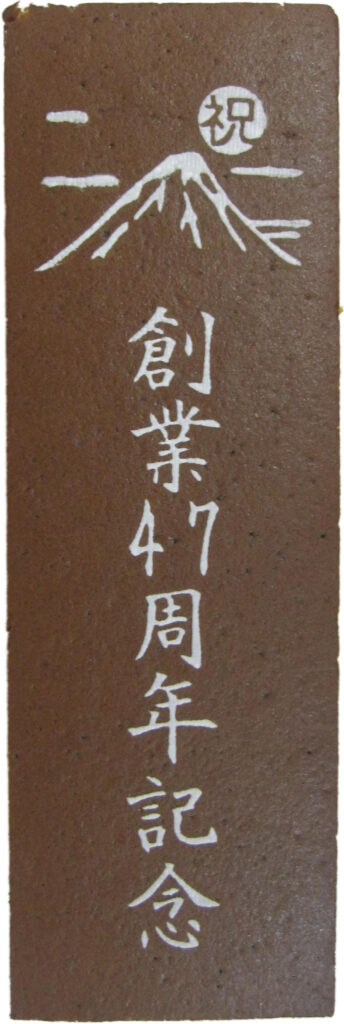 祝
創業47周年記念